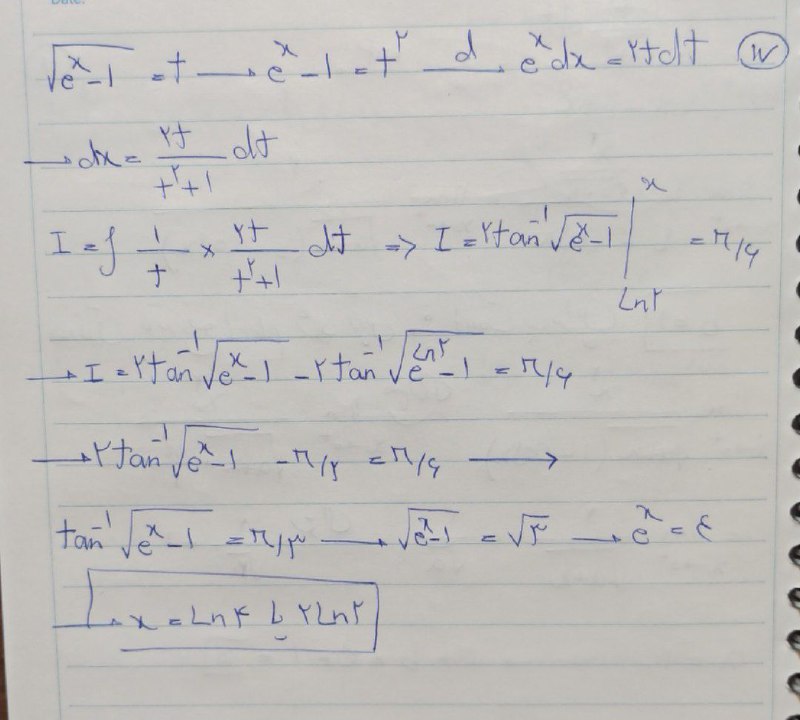 Date:
√(e^x-1) = t → e^x-1 = t^۲ —d→ e^x dx = ۲t dt ⑰
→ dx = ۲t/(t^۲+1) dt
I = ∫ 1/t × ۲t/(t^۲+1) dt => I = ۲tan^-1 √(e^x-1) |_{Ln۲}^{x} = π/۶
→ I = ۲tan^-1 √(e^x-1) - ۲tan^-1 √(e^{Ln۲}-1) = π/۶
→ ۲tan^-1 √(e^x-1) - π/۲ = π/۶ →
tan^-1 √(e^x-1) = π/۳ → √(e^x-1) = √۳ → e^x = ٤
→ x = Ln۴ یا ۲Ln۲